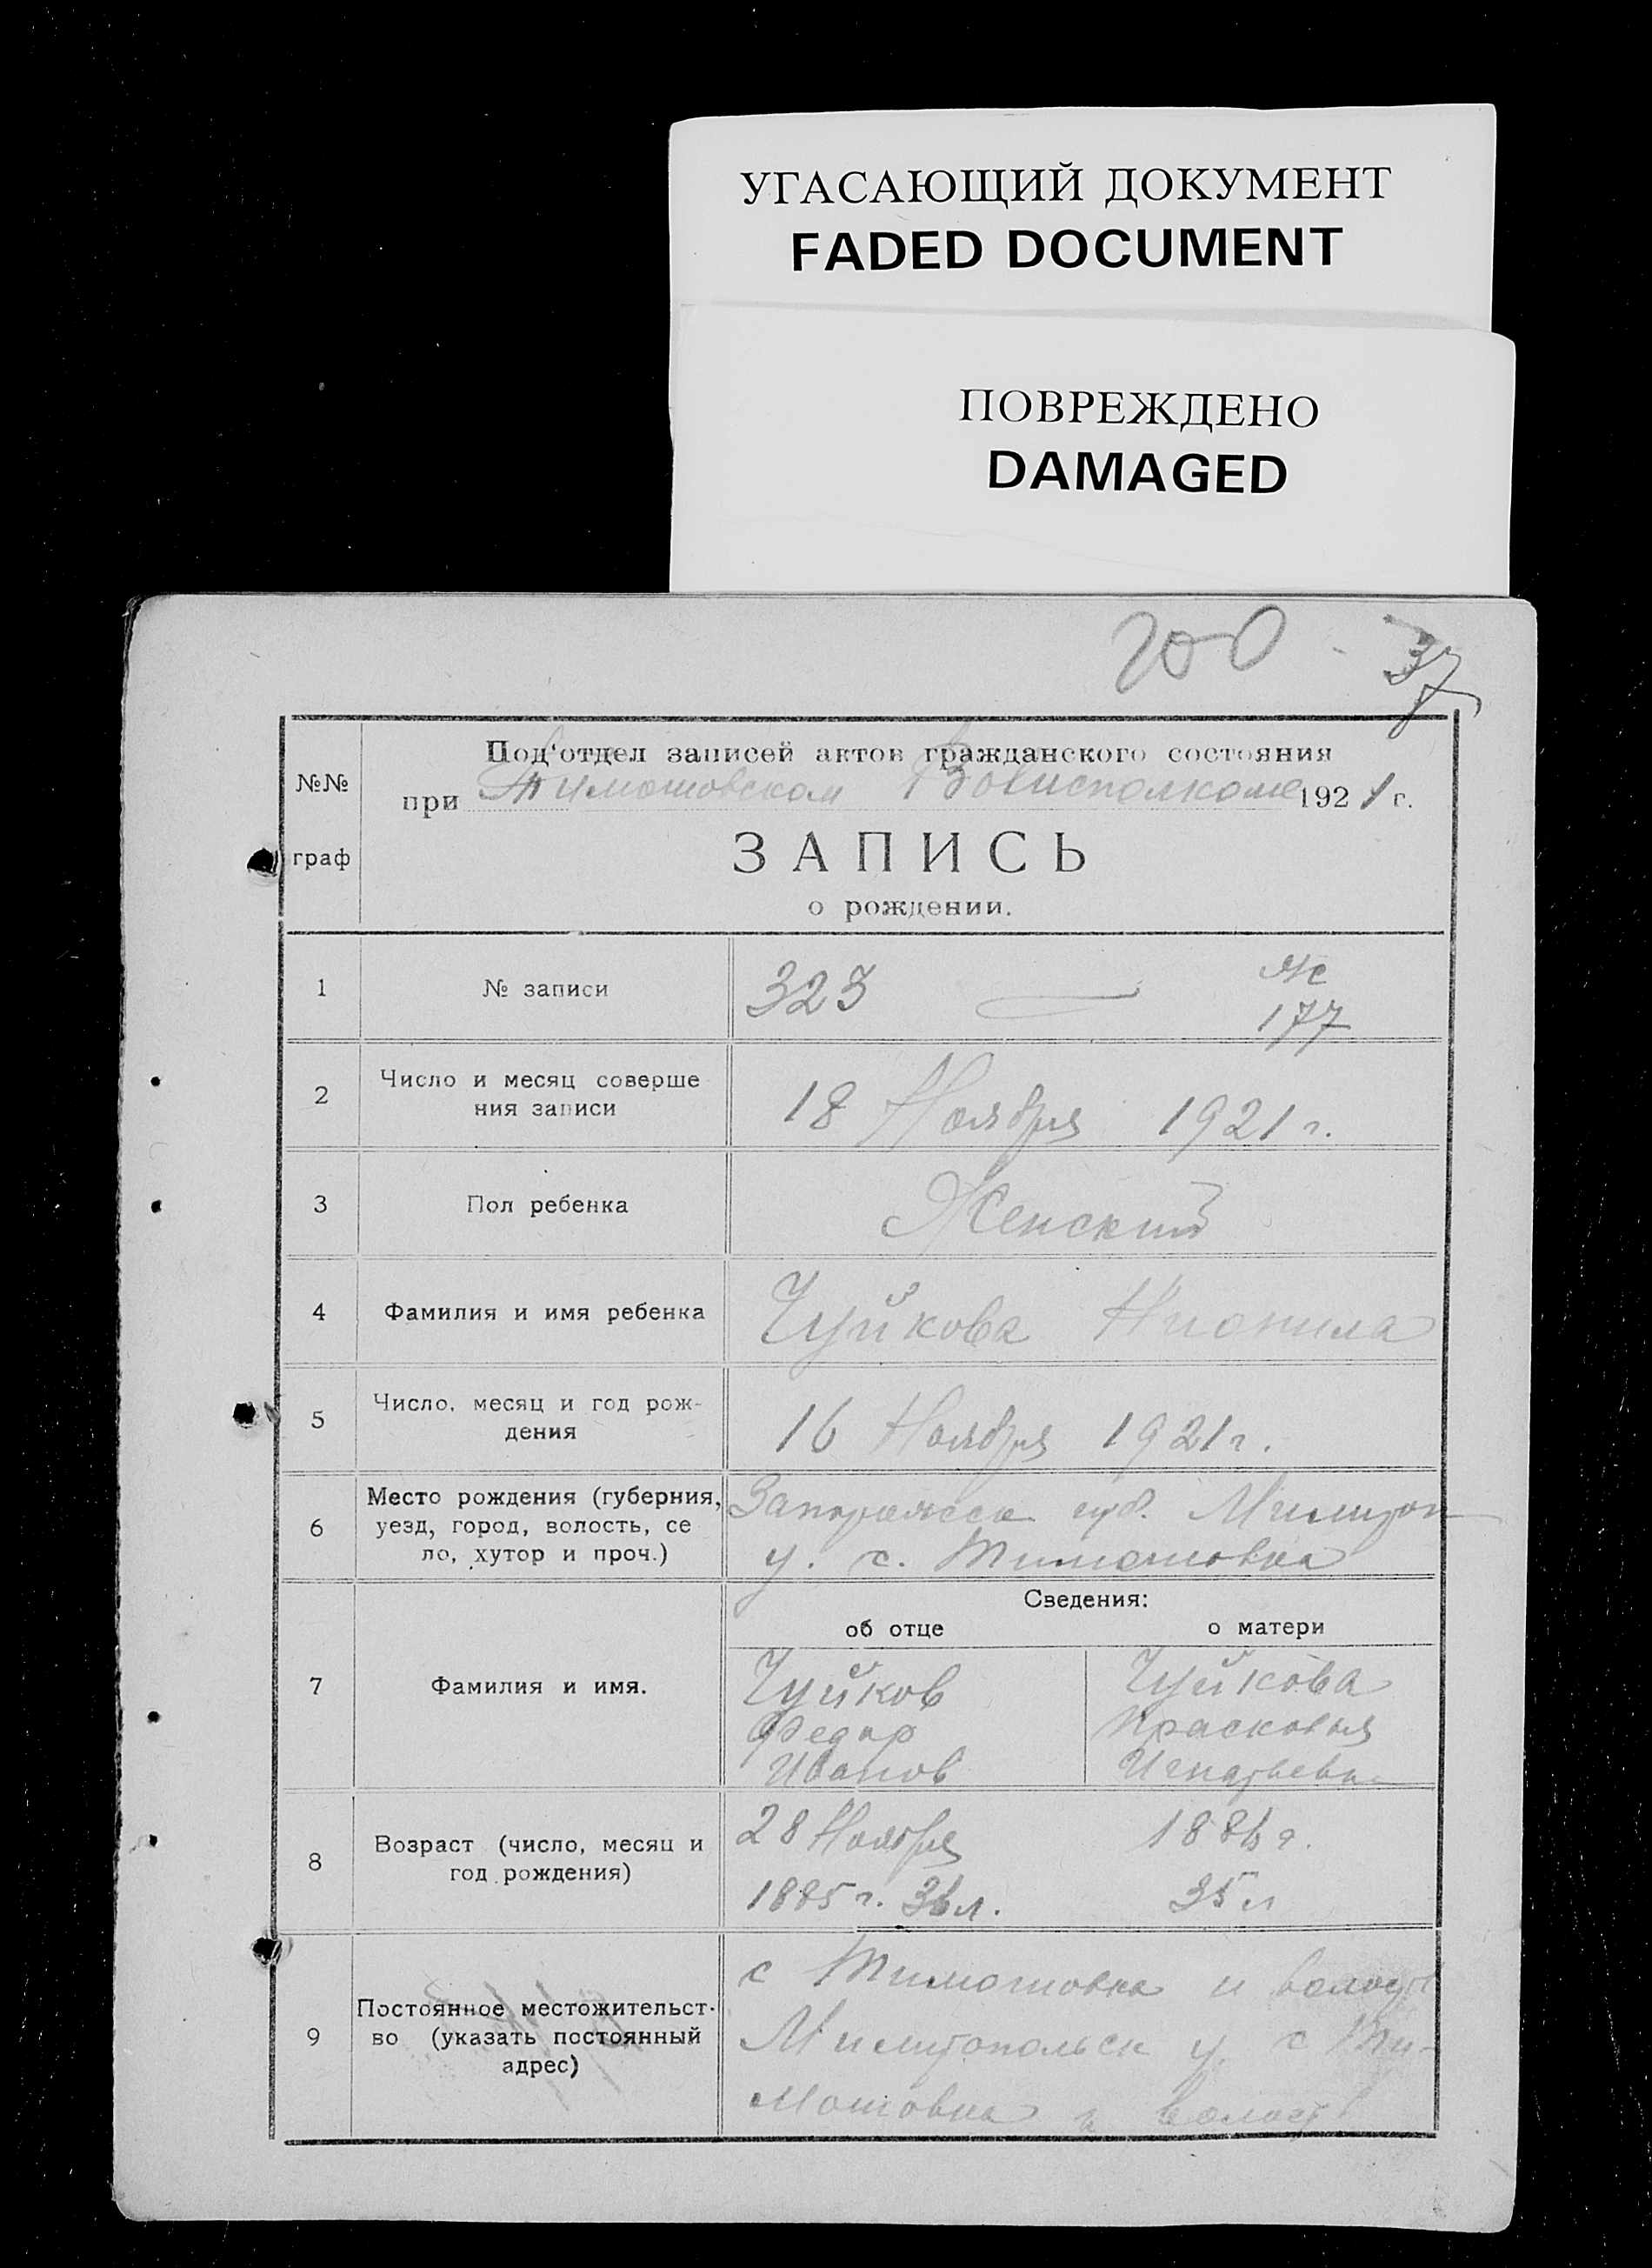 УГАСАЮЩИЙ ДОКУМЕНТ
FADED DOCUMENT
ПОВРЕЖДЕНО
DAMAGED
200 37
№№ граф
Под'отдел записей актов гражданского состояния
при Тимошовском Волисполкоме 1921 г.
ЗАПИСЬ
о рождении.
1 № записи 323 Ж
177
2 Число и месяц соверше
ния записи 18 Ноября 1921 г.
3 Пол ребенка Женский
4 Фамилия и имя ребенка Чуйкова Нионила
5 Число, месяц и год рож-
дения 16 Ноября 1921 г.
6 Место рождения (губерния,
уезд, город, волость, се
ло, хутор и проч.)
Запорожск губ. Милитоп
у. с. Тимошовка
Сведения:
об отце о матери
7 Фамилия и имя.
Чуйков Чуйкова
Федор Прасковья
Иванов Игнатьевна
8 Возраст (число, месяц и
год рождения)
28 Ноября 1886 г.
1885 г. 36 л. 35 л
9 Постоянное местожительст-
во (указать постоянный
адрес)
с Тимошовка и волости
Милитопольск у. с Ти-
мошовка и волости